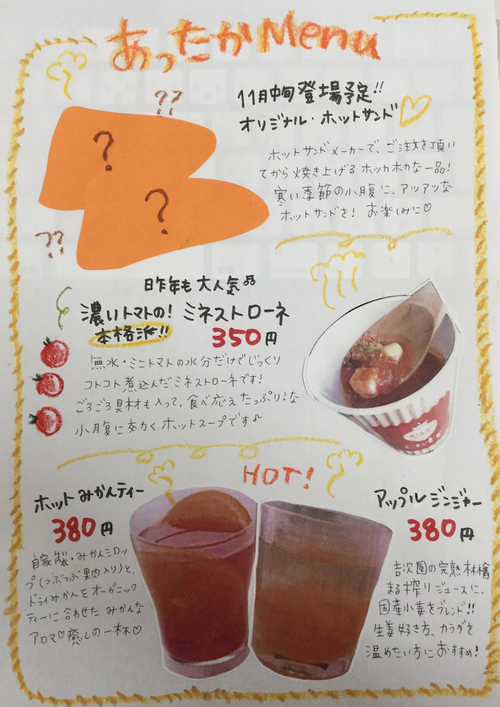 あったかMenu
??
11月中旬登場予定!!
オリジナル・ホットサンド
?
?
??
ホットサンドメーカーで、ご注文を頂い
てから焼き上げるホッカホカな一品!
寒い季節の小腹に、アツアツな
ホットサンドを! お楽しみに♡
昨年も大人気♫
濃いトマトの! ミネストローネ
本格派!! 350円
無水・ミニトマトの水分だけでじっくり
コトコト煮込んだミネストローネです!
ごろごろ具材も入って、食べ応えたっぷり!な
小腹に効くホットスープです♪
HOT!
ホットみかんティー
380円
自家製・みかんシロッ
プ(つぶつぶ果肉入り)と、
ドライみかんをオーガニック
ティーに合わせたみかんな
アロマ♡癒しの一杯♡
アップルジンジャー
380円
吉次園の完熟林檎
まる搾りジュースに、
国産小麦をブレンド!!
生姜好き方、カラダを
温めたい方におすすめ!